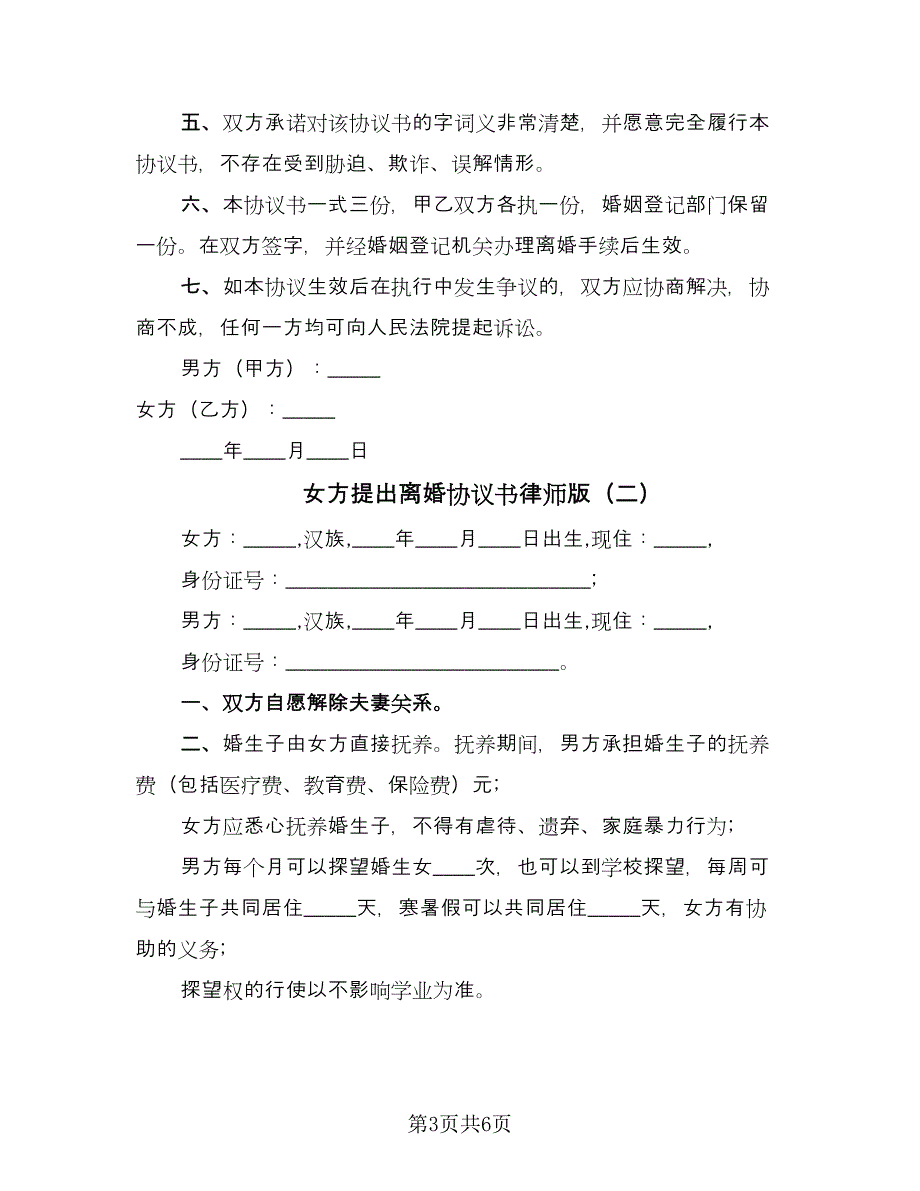 五、双方承诺对该协议书的字词义非常清楚，并愿意完全履行本
协议书，不存在受到胁迫、欺诈、误解情形。
六、本协议书一式三份，甲乙双方各执一份，婚姻登记部门保留
一份。在双方签字，并经婚姻登记机关办理离婚手续后生效。
七、如本协议生效后在执行中发生争议的，双方应协商解决，协
商不成，任何一方均可向人民法院提起诉讼。
男方（甲方）：_____
女方（乙方）：_____
____年____月____日
女方提出离婚协议书律师版（二）
女方：_____,汉族,____年____月____日出生,现住：_____，
身份证号：_____________________________；
男方：_____,汉族,____年____月____日出生,现住：_____，
身份证号：__________________________。
一、双方自愿解除夫妻关系。
二、婚生子由女方直接抚养。抚养期间，男方承担婚生子的抚养
费（包括医疗费、教育费、保险费）元；
女方应悉心抚养婚生子，不得有虐待、遗弃、家庭暴力行为；
男方每个月可以探望婚生女____次，也可以到学校探望，每周可
与婚生子共同居住_____天，寒暑假可以共同居住_____天，女方有协
助的义务；
探望权的行使以不影响学业为准。
第3页共6页